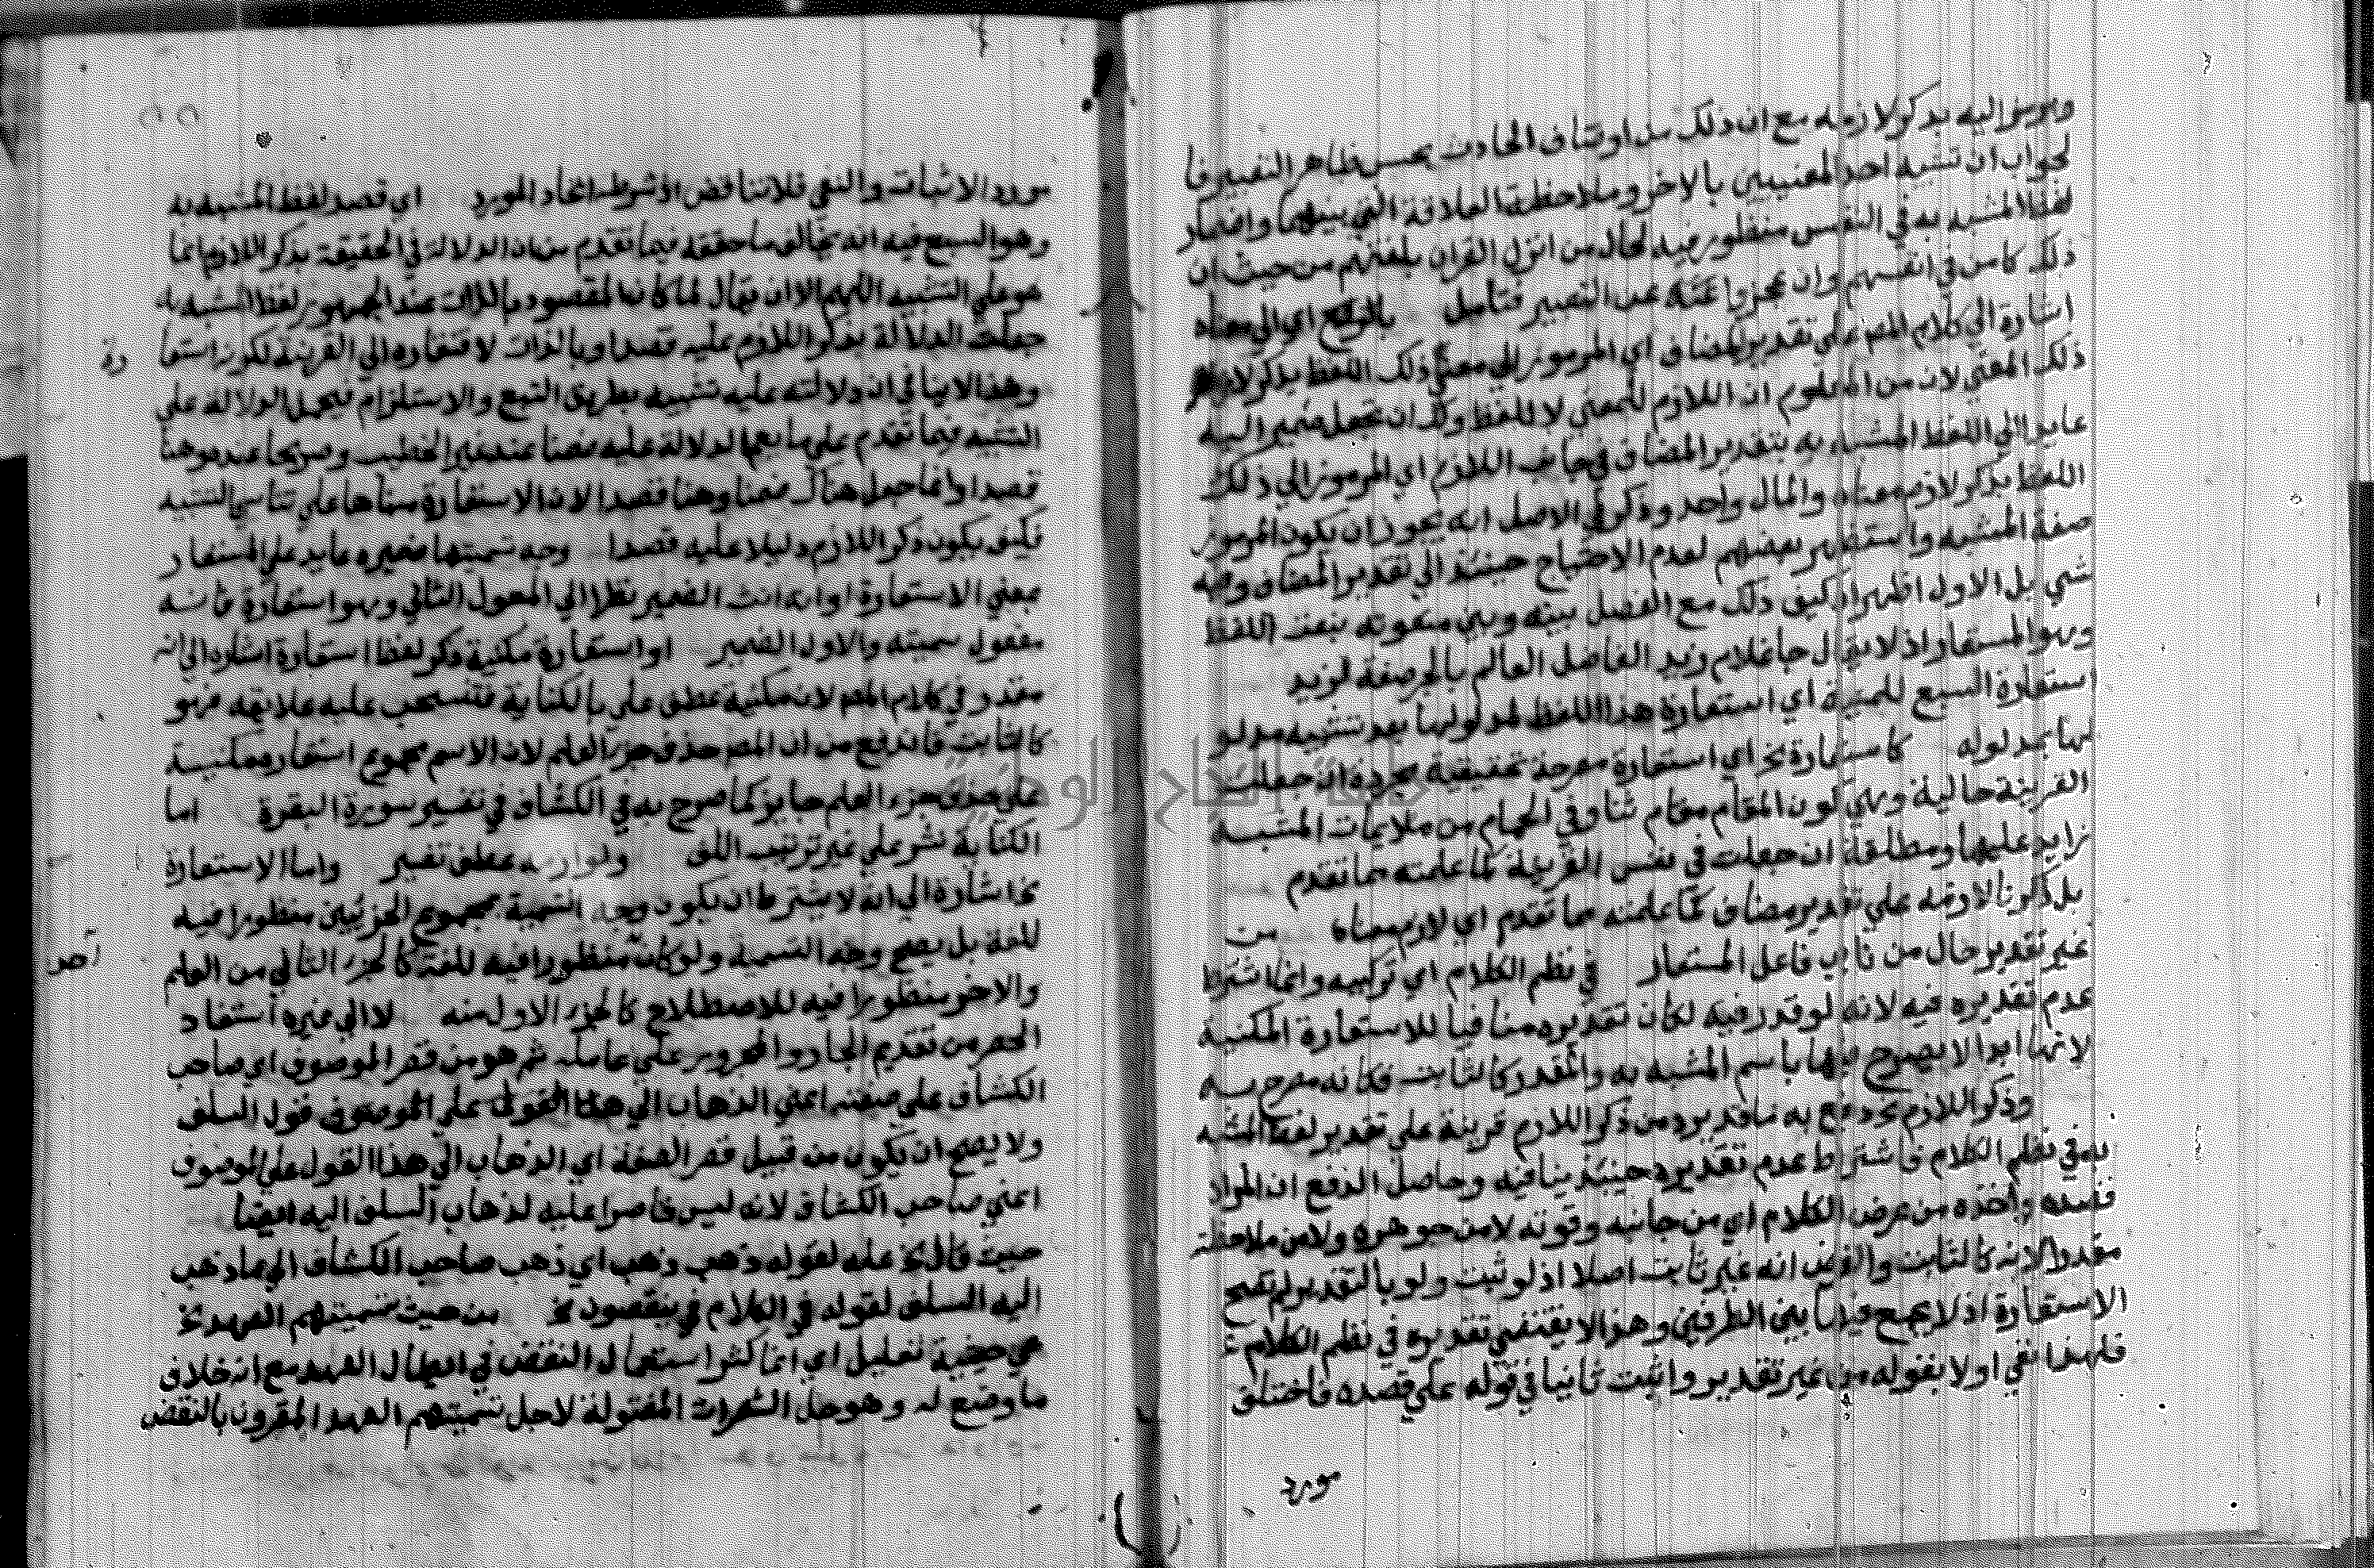 ويرمز اليه بذكر لازمه مع ان ذلك من اوتناف الحادث بحسن ظاهر التفسير فا
لجواب ان تشبيه احد المعنيين بالاخر وملاحظة العلاقة التي بينهما واضمار
لفظ المشبه به في النفس منظور فيه لحال من انزل القران بلغتهم من حيث ان
ذلك كامن في انفسهم وان عجزوا عنه عن التعبير فتأمل بالوقع اي الي معناه
اشارة الي كلام المص علي تقدير مضاف اي المرموز الي معني ذلك اللفظ بذكر لازم
ذلك المعني لان من المعلوم ان اللازم للمعني لا للفظ ولك ان تجعل ضمير اليه
عايد الي اللفظ المشبه به بتقدير المضاف في جانب اللازم اي المرموز الي ذلك
اللفظ بذكر لازم معناه والمال واحد وذكر في الاصل انه يجوز ان يكون المرموز
صفة المشبه واستظهر بعضهم لعدم الاحتياج حينئذ الي تقدير المضاف وفيه
شي بل الاول اظهر اذ كيف ذلك مع الفصل بينه وبين منعوته بنعت اللفظ
وهو المستعار اذ لا يقال جا غلام زيد الفاضل العالم بالجر صفة لزيد
استعارة السبع للمنية اي استعارة هذا اللفظ لمدلولها بعد تشبيه مدلو
لها بمدلوله كاستعارة بحر اي استعارة مصرحة تحقيقية مجردة ان جعلت
القرينة حالية وهي كون المقام مقام ثنا وفي الحمام من ملايمات المشبه
زايد عليها ومطلقة ان جعلت في نفس القرينة كما علمته مما تقدم
بل ذكرنا لازمه علي تقدير مضاف كما علمته مما تقدم اي لازم معناه من
غير تقدير حال من نايب فاعل المستعار في نظم الكلام اي تركيبه وانما اشترط
عدم تقديره فيه لانه لو قدر فيه لكان تقديره منافيا للاستعارة المكنية
لانها ابدا لا يصرح فيها باسم المشبه به والمقدر كالثابت فكانه مصرح به
وذكر اللازم بخ دفع به ما قد يرد من ذكر اللازم قرينة علي تقدير لفظ المشبه
به في نظم الكلام فاشتراط عدم تقديره حينئذ ينافيه وحاصل الدفع ان المراد
قصده واخذه من عرض الكلام اي من جانبه وقوته لا من جوهره ولا من ملاحظته
مقدرا لانه كالثابت والفرض انه غير ثابت اصلا اذ لو ثبت ولو بالتقدير لم تصح
الاستعارة اذ لا يجمع فيها بين الطرفين وهذا لا يقتضي تقديره في نظم الكلام
فلهذا نفي اولا بقوله من غير تقدير واثبت ثانيا في قوله علي قصده فاختلف
مورد
مورد الاثبات والنفي فلا تناقض اذ شرطه اتحاد المورد اي قصد لفظ المشبه به
وهو السبع فيه انه يخالف ما حققه فيما تقدم من ان الدلالة في الحقيقة بذكر اللازم انما
هو علي التشبيه اللهم الا ان يقال لما كان المقصود بالذات عند الجمهور لفظ المشبه به
جعلت الدلالة بذكر اللازم عليه قصدا وبالذات لافتقاره الي القرينة لكونه استعا
رة
وهذا لا ينافي ان دلالته عليه تشبيه بطريق التبع والاستلزام فيحمل الدلالة علي
التشبيه فيما تقدم علي ما يعم الدلالة عليه ضمنا عند غير الخطيب وصريحا عنده وهنا
قصدا وانما جعل هناك ضمنا وهنا قصدا لان الاستعارة مبناها علي تناسي التشبيه
فكيف يكون ذكر اللازم دليلا عليه قصدا وجه تسميتها ضميره عايد علي المستعار
بمعني الاستعارة او انه انث الضمير نظرا الي المعول الثاني وهو استعارة فانه
مفعول تسميته والاول الضمير او استعارة مكنية ذكر لفظ استعارة اشارة الي انه
مقدر في كلام المص لان مكنية عطف علي بالكناية فتسحب عليه علاقته فهو
كالثابت فاندفع من ان المص حذف جزء العلم لان الاسم مجموع استعارة مكنية
علي حذف جزء العلم جايز كما صرح به في الكشاف في تفسير سورة البقرة اما
الكناية نشر علي غير ترتيب اللف ولوازمه عطف تفسير واما الاستعارة
بخ اشارة الي انه لا يشترط ان يكون وجه التسمية بمجموع الجزئين منظورا فيه
للغة بل يصح وجه التسمية ولو كان منظورا فيه للغة كالجزء الثاني من العلم
احد
والاخر منظورا فيه للاصطلاح كالجزء الاول منه لا الي غيره استفاد
الحصر من تقديم الجار والمجرور علي عامله ثم هو من قصر الموصوف اي صاحب
الكشاف علي صفته اعني الذهاب الي هذا القول علي الموصوف قول السلف
ولا يصح ان يكون من قبيل قصر الصفة اي الذهاب الي هذا القول علي الموصوف
اعني صاحب الكشاف لانه ليس قاصرا عليه لذهاب السلف اليه ايضا
حيث قال بخ علة لقوله ذهب وذهب اي ذهب صاحب الكشاف الي ما ذهب
اليه السلف لقوله في الكلام في ينقضون بخ من حيث تسميتهم العهد بخ
هي حيثية تعليل اي انما كثر استعمال النقض في ابطال العهد مع انه خلاف
ما وضع له وهو حل الشعرات المفتولة لاجل تسميتهم العهد المقرون بالنقض